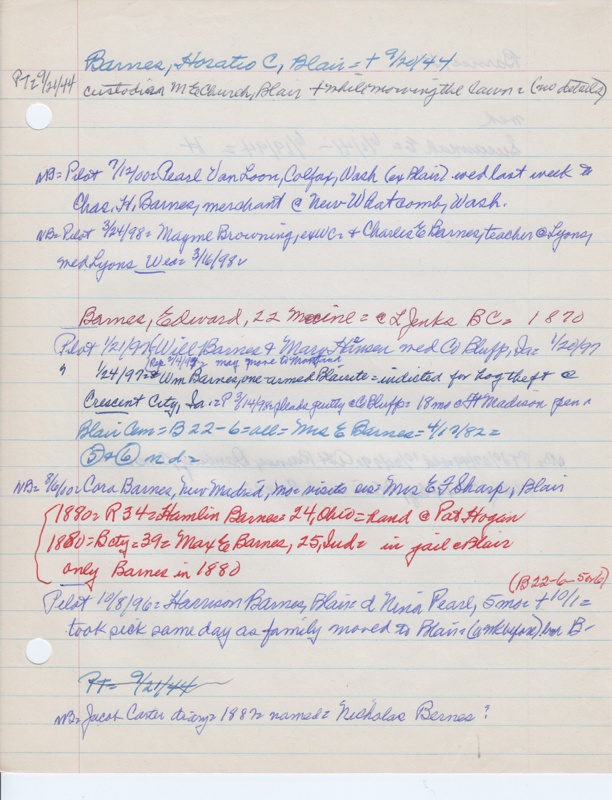 Barnes, Horatio C, Blair = + 9/20/44
PT = 9/21/44
custodian M E Church, Blair + while mowing the lawn = (no details)
NB = Pilot 7/12/00 = Pearl Van Loon, Colfax, Wash (ex Blair) wed last week to
Chas. H. Barnes, merchant @ New Whatcomb, Wash.
NB = Pilot 3/24/98 = Mayme Browning, ex WC = & Charles E Barnes, teacher @ Lyons,
wed Lyons Wed = 3/16/98
Barnes, Edward, 22 Maine = @ L Jenks BC = 1870
Pilot 1/21/97 Will Barnes & Mary Hansen wed Co Bluff, Ia = 1/20/97
" 1/24/97 = Wm Barnes, one armed Blairite = indicted for hog theft @
Crescent City, Ia. = P 3/14/98 pleads guilty @ C Bluff = 18 mo @ Ft Madison pen
Blair Cem = B 22-6 = all = Mrs E Barnes = 4/17/82 =
5 & 6 n d =
NB = 8/16/00 = Cora Barnes, New Madrid, Mo = visits sis = Mrs E F Sharp, Blair
1880 = R 34 = Hamlin Barnes = 24, Ohio = hand @ Pat Hogan
1880 = B cty = 39 = Max E Barnes, 25, Ind = in jail @ Blair
only Barnes in 1880
(B 22-6 - 5 or 6)
Pilot 10/8/96 = Harrison Barnes, Blair = d Nina Pearl, 5 mo = + 10/1 =
took sick same day as family moved to Blair = (a wk before) bur B -
PT = 9/21/44
NB = Jacob Carter diary = 1882 = named = Nicholas Bernes?